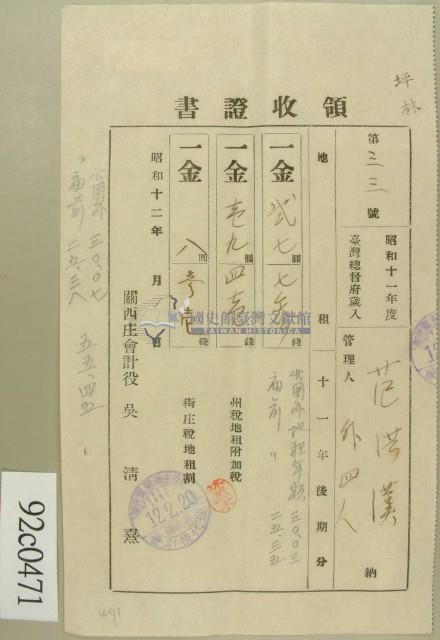 坪林
領收證書
第三三號
昭和十一年度
臺灣總督府歲入
管理人
范洪漢
外四人
納
地租 十一年後期分
一金 貳七圓七
錢
公園外地租年額 三〇.〇三
廟前 〃 二五.三五
一金 壱九圓四
錢
州稅地租附加稅
一金 八圓
錢
街庄稅地租割
昭和十二年 月 日
關西庄會計役 吳清熹
12.2.20
國史館臺灣文獻館
TAIWAN HISTORICA
三〇.〇七
廟前 二五.三八
五五.四五
92c0471
491